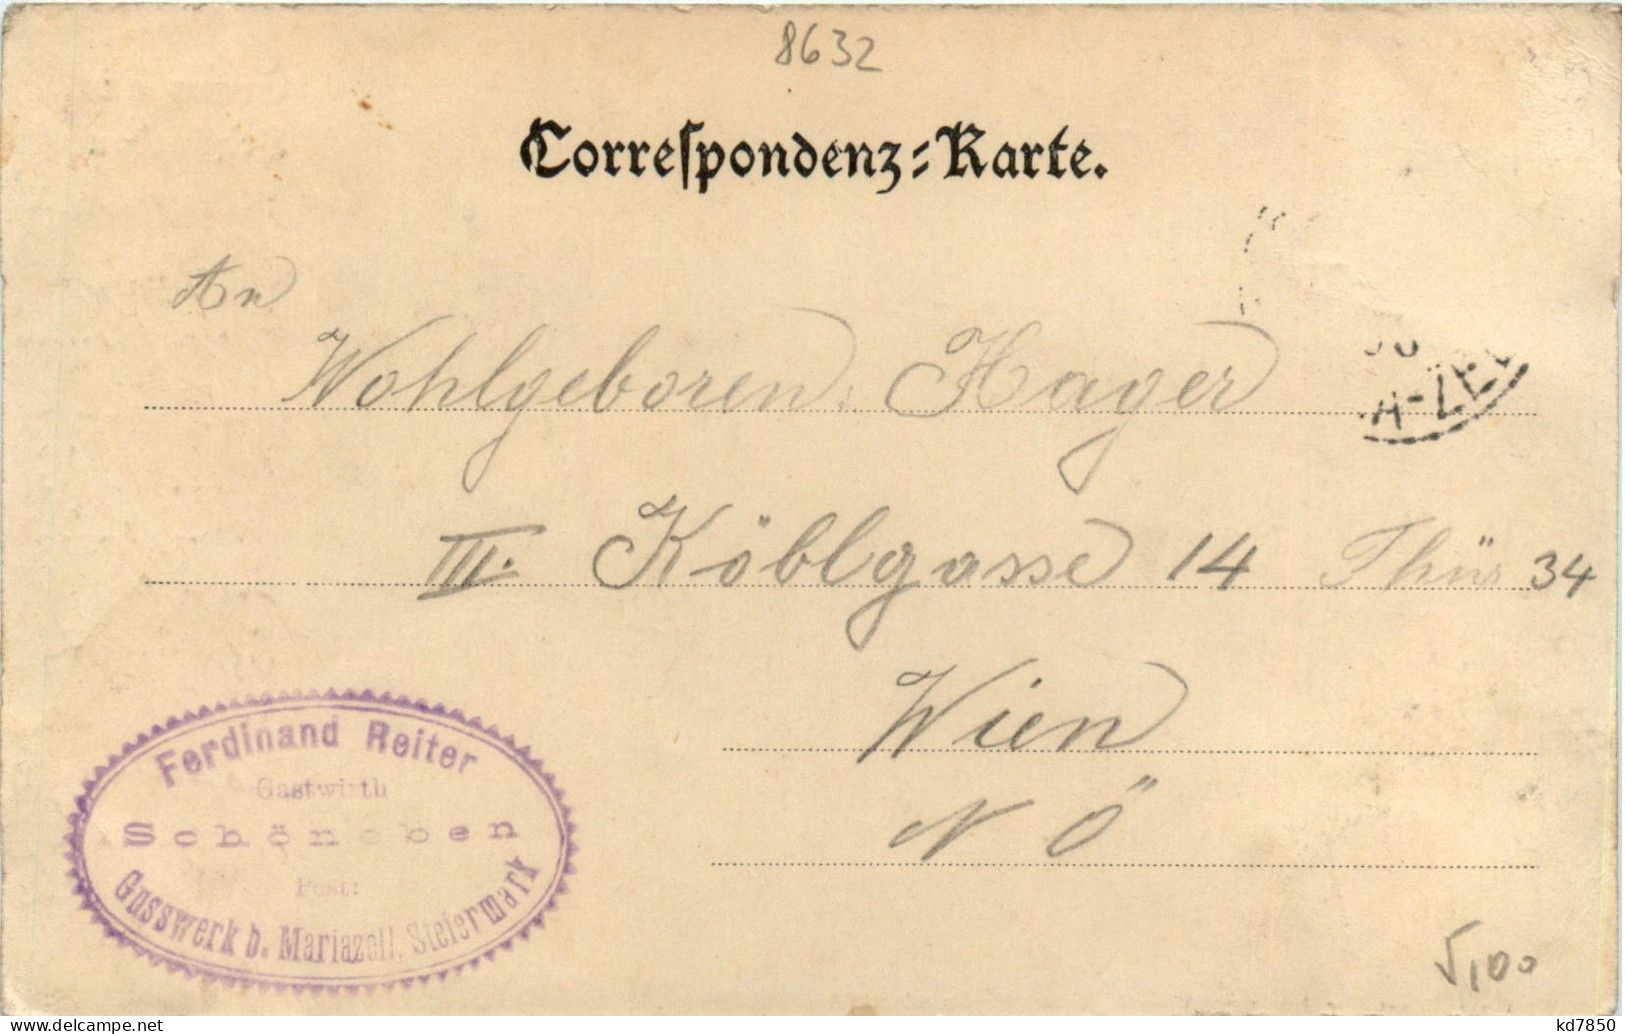 8632
Correspondenz-Karte.
An
Wohlgeboren: Hager
III. Köblgasse 14 Thür 34
Wien
NÖ
Ferdinand Reiter
Gastwirth
Schöneben
Post:
Gusswerk b. Mariazell, Steiermark
5,00
www.delcampe.net
kd7850